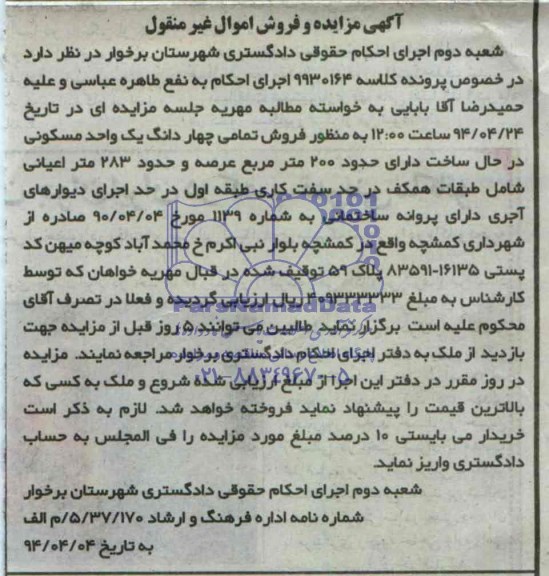 آگهی مزایده و فروش اموال غیر منقول
شعبه دوم اجرای احکام حقوقی دادگستری شهرستان برخوار در نظر دارد
در خصوص پرونده کلاسه ۹۹۳۰۱۶۴ اجرای احکام به نفع طاهره عباسی و علیه
حمیدرضا آقا بابایی به خواسته مطالبه مهریه جلسه مزایده ای در تاریخ
۹۴/۰۴/۲۴ ساعت ۱۲:۰۰ به منظور فروش تمامی چهار دانگ یک واحد مسکونی
در حال ساخت دارای حدود ۲۰۰ متر مربع عرصه و حدود ۲۸۳ متر اعیانی
شامل طبقات همکف در حد سفت کاری طبقه اول در حد اجرای دیوارهای
آجری دارای پروانه ساختمانی به شماره ۱۱۳۹ مورخ ۹۰/۰۴/۰۴ صادره از
شهرداری کمشچه واقع در کمشچه بلوار نبی اکرم خ محمد آباد کوچه میهن کد
پستی ۱۶۱۳۵-۸۳۵۹۱ پلاک ۵۹ توقیف شده در قبال مهریه خواهان که توسط
کارشناس به مبلغ ۴۰۹۳۳۳۳۳۳ ریال ارزیابی گردیده و فعلا در تصرف آقای
محکوم علیه است برگزار نماید طالبین می توانند ۵ روز قبل از مزایده جهت
بازدید از ملک به دفتر اجرای احکام دادگستری برخوار مراجعه نمایند. مزایده
در روز مقرر در دفتر این اجرا از مبلغ ارزیابی شده شروع و ملک به کسی که
بالاترین قیمت را پیشنهاد نماید فروخته خواهد شد. لازم به ذکر است
خریدار می بایستی ۱۰ درصد مبلغ مورد مزایده را فی المجلس به حساب
دادگستری واریز نماید.
شعبه دوم اجرای احکام حقوقی دادگستری شهرستان برخوار
شماره نامه اداره فرهنگ و ارشاد ۵/۳۷/۱۷۰/م الف
به تاریخ ۹۴/۰۴/۰۴
ParsNamadData
۰۲۱-۸۸۳۴۹۶۷۰-۵